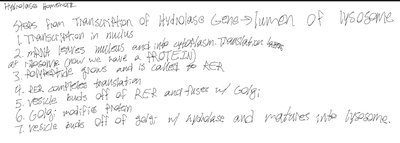 Hydrolase Homework
Steps from Transcription of Hydrolase Gene → lumen of lysosome
1. Transcription in nucleus
2. mRNA leaves nucleus and into cytoplasm. Translation
at ribosome (now we have a PROTEIN)
3. Polypeptide grows and is called to RER
4. RER completes translation
5. vesicle buds off of RER and fuses w/ Golgi
6. Golgi modifies protein
7. vesicle buds off of golgi w/ hydrolase and matures into lysosome.